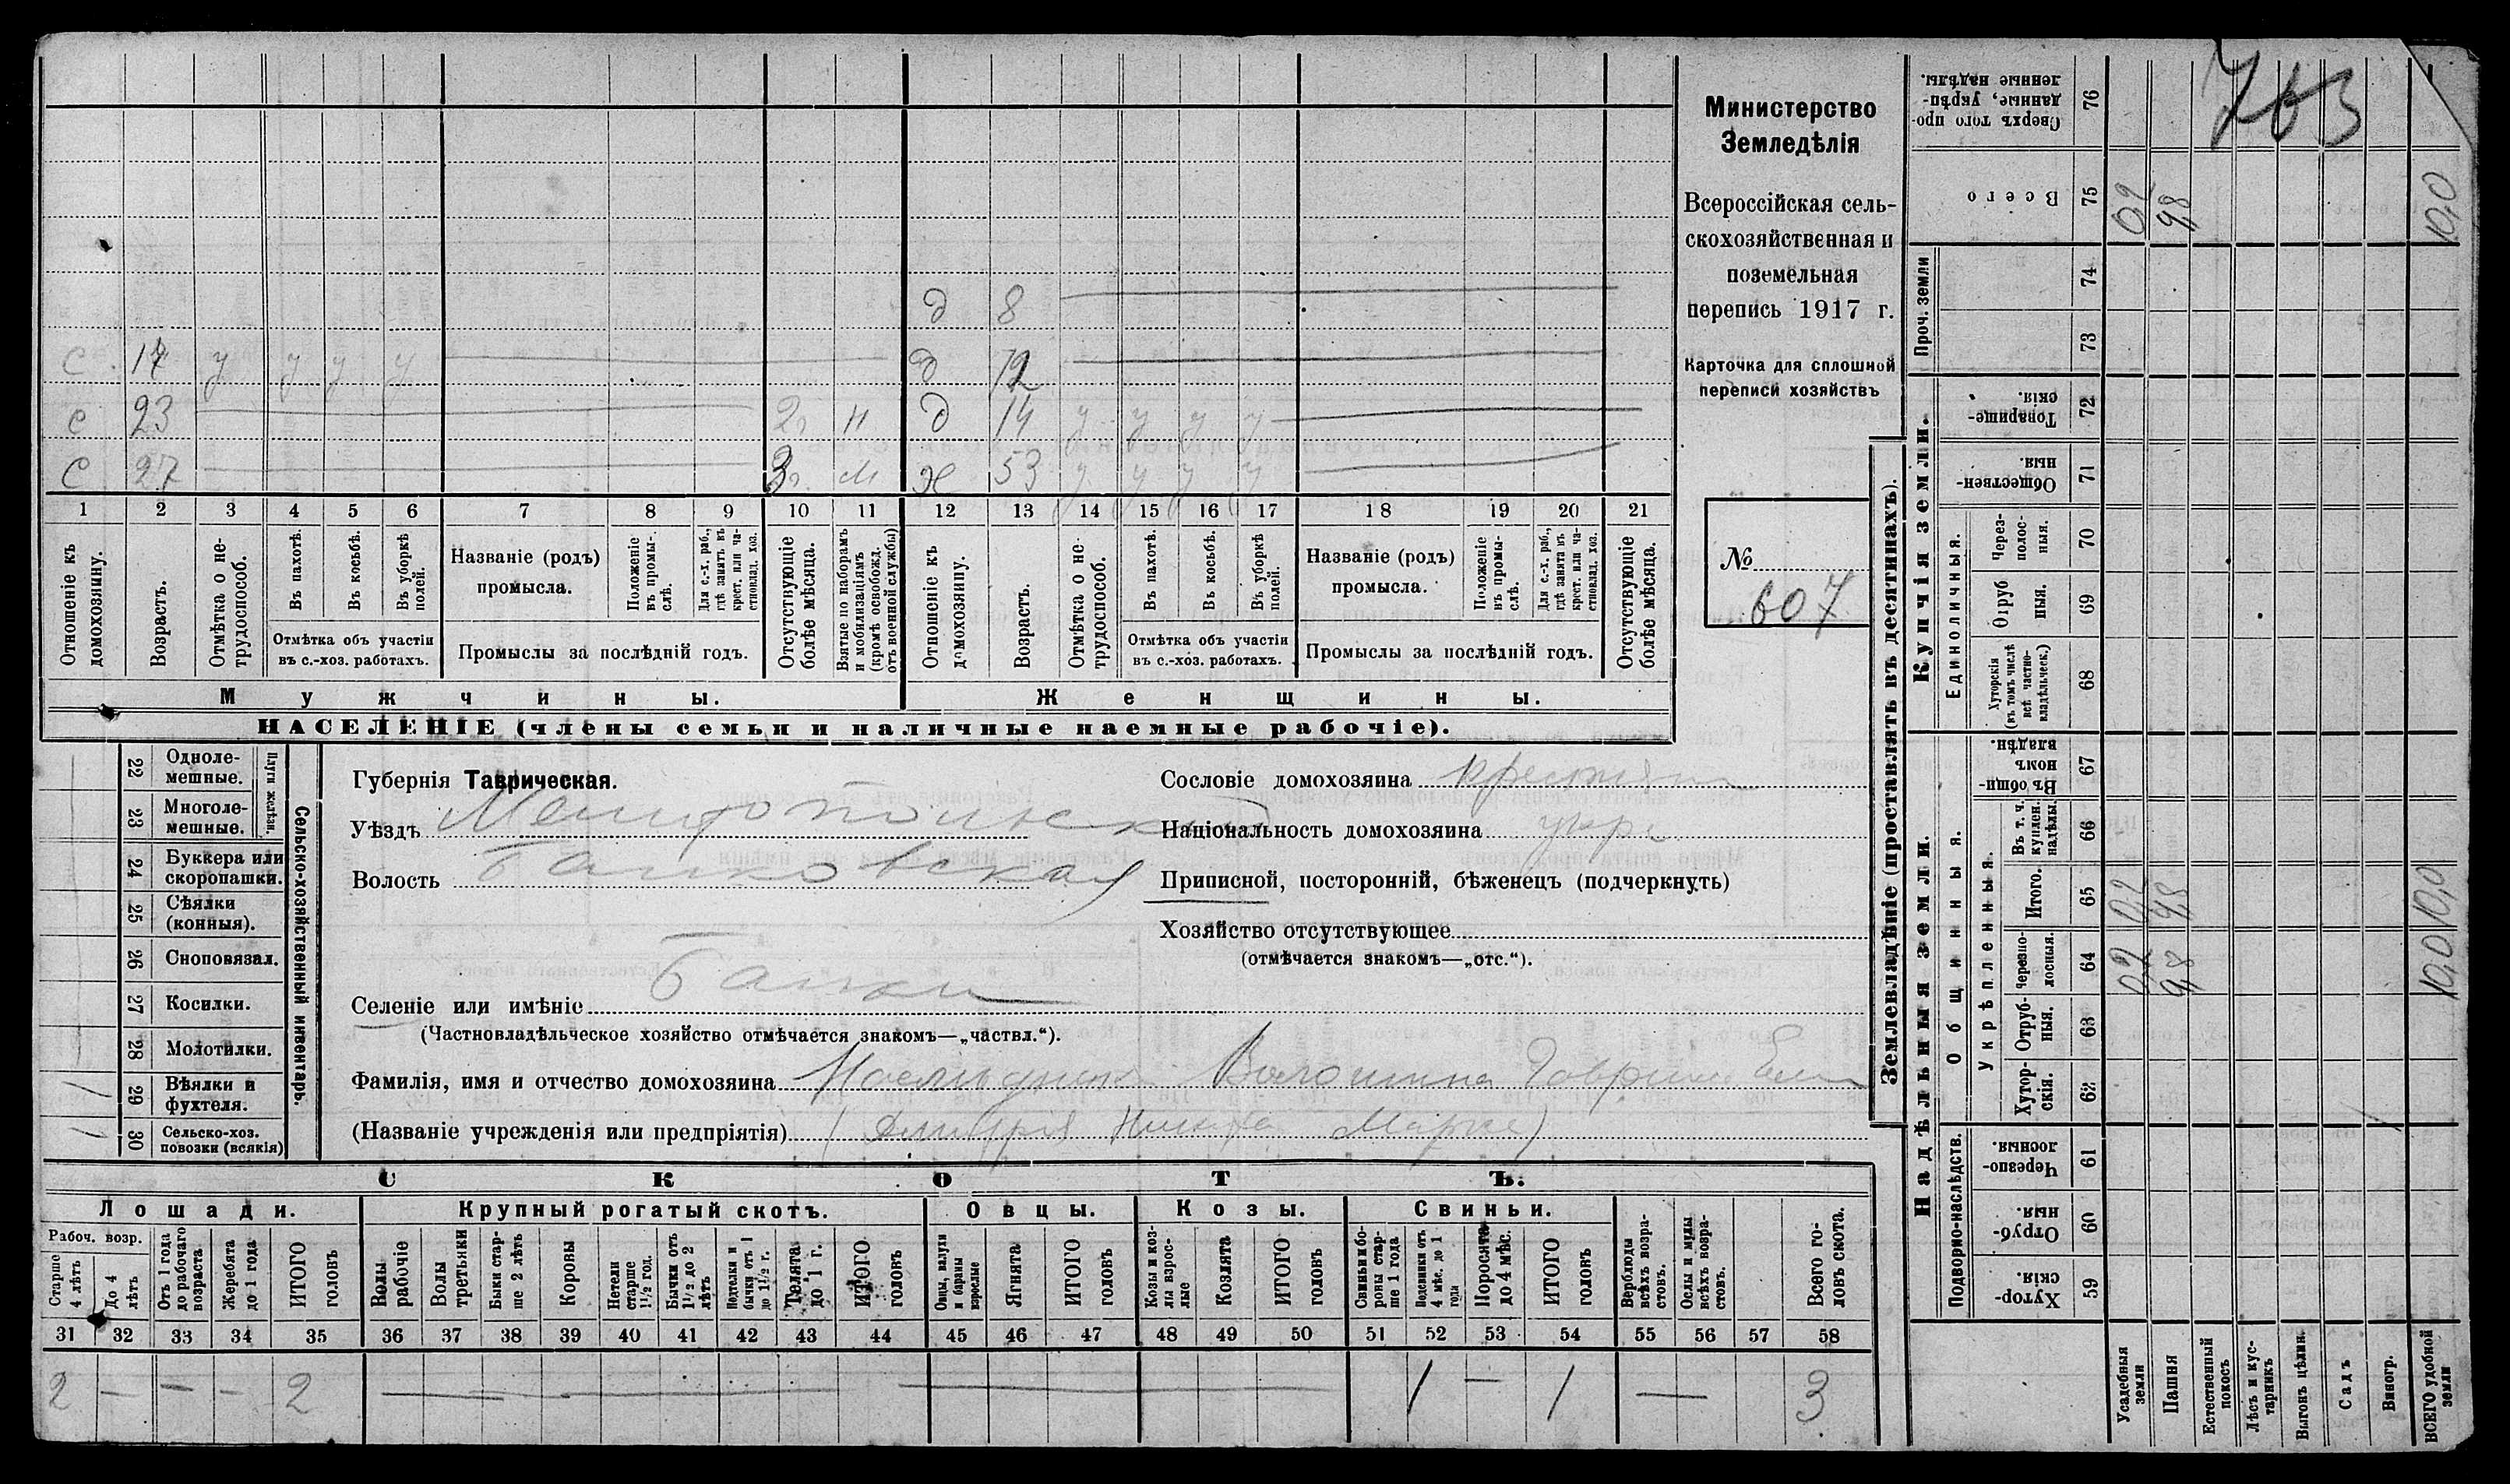 763
Министерство
Земледѣлія
Всероссійская сель-
скохозяйственная и
поземельная
перепись 1917 г.
Карточка для сплошной
переписи хозяйствъ
№
607
д 8
с 17 у у у у
д 12
с 23 2 г. н
д 14 у у у у
с 27 3 г. м
ж 53 у у у у
1 2 3 4 5 6 7 8 9 10 11 12 13 14 15 16 17 18 19 20 21
Отношеніе къ домохозяину.
Возрастъ.
Отмѣтка о не-трудоспособ.
Въ пахотѣ.
Въ косьбѣ.
Въ уборкѣ полей.
Отмѣтка объ участіи
въ с.-хоз. работахъ.
Названіе (родъ)
промысла.
Положеніе въ промы-слѣ.
Для с.-х. раб., гдѣ занятъ въ крест. или ча-стновлад. хоз.
Промыслы за послѣдній годъ.
Отсутствующіе болѣе мѣсяца.
Взятые по наборамъ и мобилизаціямъ (кромѣ освобожд. отъ военной службы)
Отношеніе къ домохозяину.
Возрастъ.
Отмѣтка о не-трудоспособ.
Въ пахотѣ.
Въ косьбѣ.
Въ уборкѣ полей.
Отмѣтка объ участіи
въ с.-хоз. работахъ.
Названіе (родъ)
промысла.
Положеніе въ промы-слѣ.
Для с.-х. раб., гдѣ занятъ въ крест. или ча-стновлад. хоз.
Промыслы за послѣдній годъ.
Отсутствующіе болѣе мѣсяца.
Мужчины.
Женщины.
НАСЕЛЕНІЕ (члены семьи и наличные наемные рабочіе).
22 Одноле-мешные.
23 Многоле-мешные.
Плуги желѣзн.
24 Буккера или скоропашки.
25 Сѣялки (конныя).
26 Сноповязал.
27 Косилки.
28 Молотилки.
1 29 Вѣялки и фухтеля.
1 30 Сельско-хоз. повозки (всякія)
Сельско-хозяйственный инвентарь.
Губернія Таврическая.
Уѣздъ Мелитопольскій
Волость Балковская
Селеніе или имѣніе Балки
(Частновладѣльческое хозяйство отмѣчается знакомъ—„частвл.“).
Сословіе домохозяина крестьян
Національность домохозяина укр
Приписной, посторонній, бѣженец (подчеркнуть)
Хозяйство отсутствующее
(отмѣчается знакомъ—„отс.“).
Фамилія, имя и отчество домохозяина Волошина
(Названіе учрежденія или предпріятія) Марке)
СКОТЪ.
Лошади.
Крупный рогатый скотъ.
Овцы.
Козы.
Свиньи.
Рабоч. возр.
Старше 4 лѣтъ
До 4 лѣтъ
Отъ 1 года до рабочаго возраста
Жеребята до 1 года
ИТОГО головъ
Волы рабочіе
Волы третьяки
Быки стар-ше 2 лѣтъ
Коровы
Нетели старше 1½ год.
Бычки отъ 1½ до 2 лѣтъ
Подтелки и бычки отъ 1 до 1½ г.
Телята до 1 г.
ИТОГО головъ
Овцы, валухи и бараны взрослые
Ягнята
ИТОГО головъ
Козы и коз-лы взрос-лые
Козлята
ИТОГО головъ
Свиньи и бо-роны стар-ше 1 года
Подсвинки отъ 4 мѣс. до 1 года
Поросята до 4 мѣс.
ИТОГО головъ
Верблюды всѣхъ возра-стовъ.
Ослы и мулы всѣхъ возра-стовъ.
Всего го-ловъ скота.
31 32 33 34 35 36 37 38 39 40 41 42 43 44 45 46 47 48 49 50 51 52 53 54 55 56 57 58
2 — — — 2 — — — — — 1 — 1 — 3
Землевладѣніе (проставлять въ десятинахъ).
Купчія земли.
Надѣльныя земли.
Сверхъ того про-данные, укрѣп-ленные надѣлы. 76
Всего 75 0,2 9,8 10,0
Проч. земли
74
73
Товарище-скія. 72
Обществен-ныя. 71
Единоличныя.
Через-полос-ныя. 70
Отруб ныя. 69
Хуторскія (въ томъ числѣ всѣ частно-владѣльческ.) 68
Общинныя.
Въ общи-номъ владѣн. 67
Укрѣпленныя.
Въ т. ч. куплен. надѣлы. 66
Итого. 65 0,2 9,8 10,0
Черезпо-лосныя. 64 0,2 9,8 10,0
Отруб-ныя. 63
Хутор-скія. 62
Подворно-наслѣдств.
Черезпо-лосныя. 61
Отруб-ныя. 60
Хутор-скія. 59
Усадебныя земли
Пашня
Естественный покосъ
Лѣсъ и кус-тарникъ
Выгонъ цѣлин.
Садъ
Виногр.
ВСЕГО удобной земли